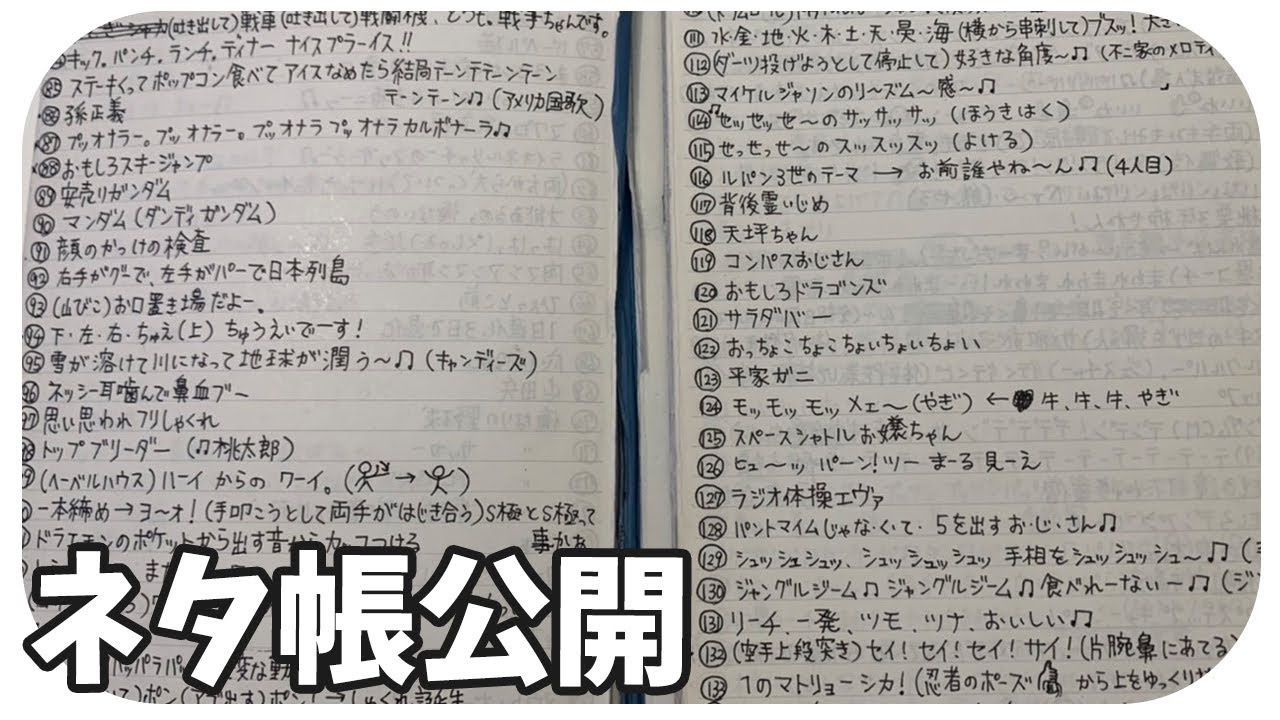 (吐き出して)戦車(吐き出して)戦闘機、とっても。戦争ちゃんです。
キック。パンチ。ランチ。ディナー ナイスプラーイス!!
85 ステーキくってポップコン食べてアイスなめたら結局テーンテテーンテーン
テーンテーン♫(アメリカ国歌)
86 孫正義
87 プッオナラー。プッオナラー。プッオナラプッオナラカルボナーラ♫
88 おもしろスキージャンプ
89 安売りガンダム
90 マンダム(ダンディガンダム)
91 顔のかっけの検査
92 右手がグーで、左手がパーで日本列島
93 (山びこ)お口置き場だよー、
94 下・左・右・ちゅえ(上) ちゅうえいでーす!
95 雪が溶けて川になって地球が潤う〜♫(キャンディーズ)
96 ネッシー耳噛んで鼻血ブー
97 思い思われフリしゃくれ
トップブリーダー (♫桃太郎)
(ヘーベルハウス)ハーイ からの ワーイ。( → )
一本締め→ヨ〜オ!(手叩こうとして両手がはじき合う)S極とS極って
事かぁ
ドラエモンのポケットから出す音から
111 水・金・地・火・木・土・天・冥・海(横から串刺して)ブスッ!
112 (ダーツ投げようとして停止して)好きな角度〜♫ (不二家のメロディ
113 マイケルジャソンのリ〜ズム〜感〜♫
114 ♫セッセッセ〜のサッサッサッ (ほうきはく)
115 せっせっせ〜のスッスッスッ (よける)
116 ルパン3世のテーマ → お前誰やね〜ん♫(4人目)
117 背後霊いじめ
118 天坪ちゃん
119 コンパスおじさん
120 おもしろドラゴンズ
121 サラダバー
122 おっちょこちょこちょいちょいちょい
123 平家ガニ
124 モッモッモッメェ〜(やぎ) ← 牛、牛、牛、やぎ
125 スペースシャトルお嬢ちゃん
126 ヒュ〜ッ パーン!ツー まーる見ーえ
127 ラジオ体操エヴァ
128 パントマイムじゃな・く・て・5を出すお・じ・さん♫
129 シュッシュシュッ、シュッシュッシュッ 手相をシュッシュッシュ〜♫
130 ジャングルジーム♫ジャングルジーム♫食べれーないー♫(ジ
131 リーチ、一発、ツモ、ツナ、おいしい♫
132 (空手上段突き)セイ!セイ!セイ!サイ!(片腕鼻にあてる)
133 1のマトリョーシカ!(忍者のポーズ から上をゆっくり
ネタ帳公開